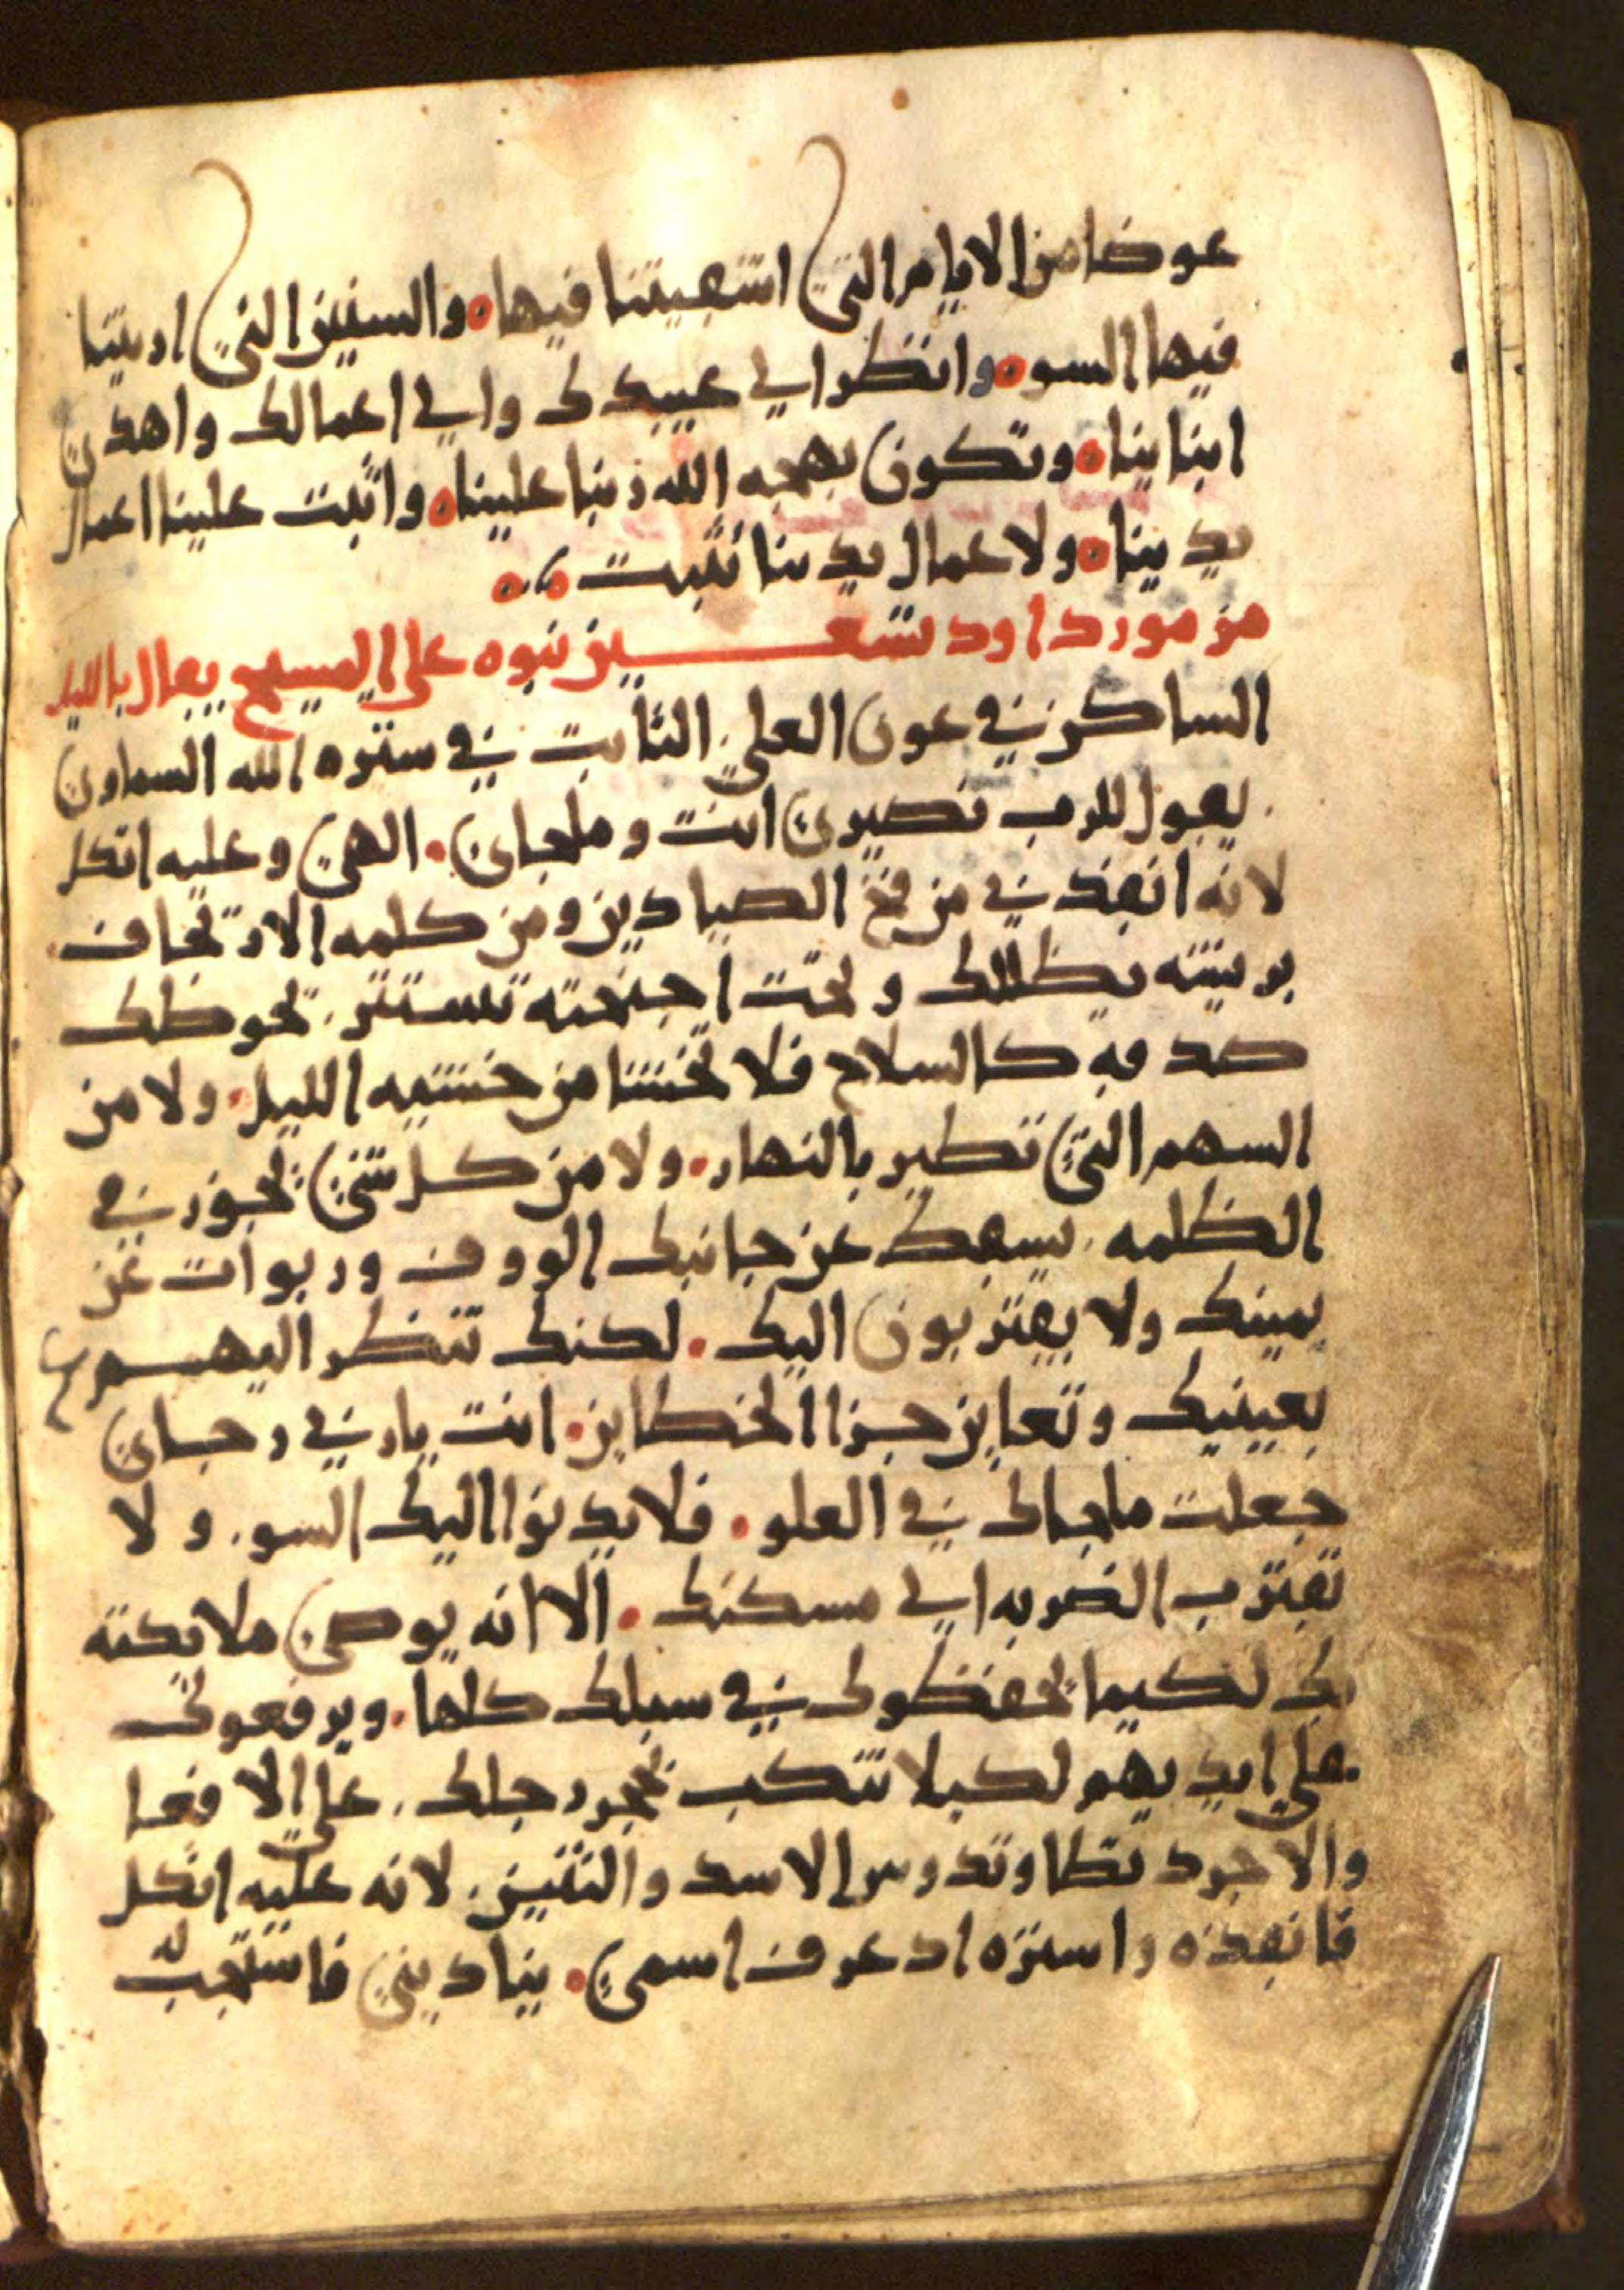 عوضا من الايام التي اشقيتنا فيها · والسنين التي اريتنا
فيها السو · وانظر الي عبيدك والي اعمالك واهدي
ابناينا · وتكون بهجه الله ربنا علينا · واثبت علينا اعمال
يدينا · ولاعمال يدينا تثبت ·،·
من مور داود تسعين نبوه علي المسيح يقال بالليل
الساكن في عون العلي. الثابت في ستره الله السماوي
يقول للرب نصيري انت وملجاي · الهي وعليه اتكل
لانه انقذني من فخ الصيادين ومن كلمه الارتخاف ·
بريشه يظللك وتحت اجنحته تستتر. تحوطك
صدقه كالسلاح فلا تخشا من خشيه الليل · ولا من
السهم التي تطير بالنهار · ولا من كل شي تجوز في
الظلمه. يسقط عن جانبك الووف وربوات عن
يمينك ولا يقتربون اليك · لكنك تنظر اليهم
بعينيك وتعاين جزا الخطاين · انت يارب رجاي
جعلت ملجاك في العلو · فلا يدنوا اليك السو. ولا
تقترب الضربه الي مسكنك · الا انه يوصي ملايكته
بك لكيما تحفظوك في سبلك كلها · ويرفعوك
علي ايديهم لكيلا تنكب بحجر رجلك. علي الافعا
والاجرد تطا وتدوس الاسد والتنين. لانه عليه اتكل
فانقذه واستره اذ عرف اسمي · يناديني فاستجب له